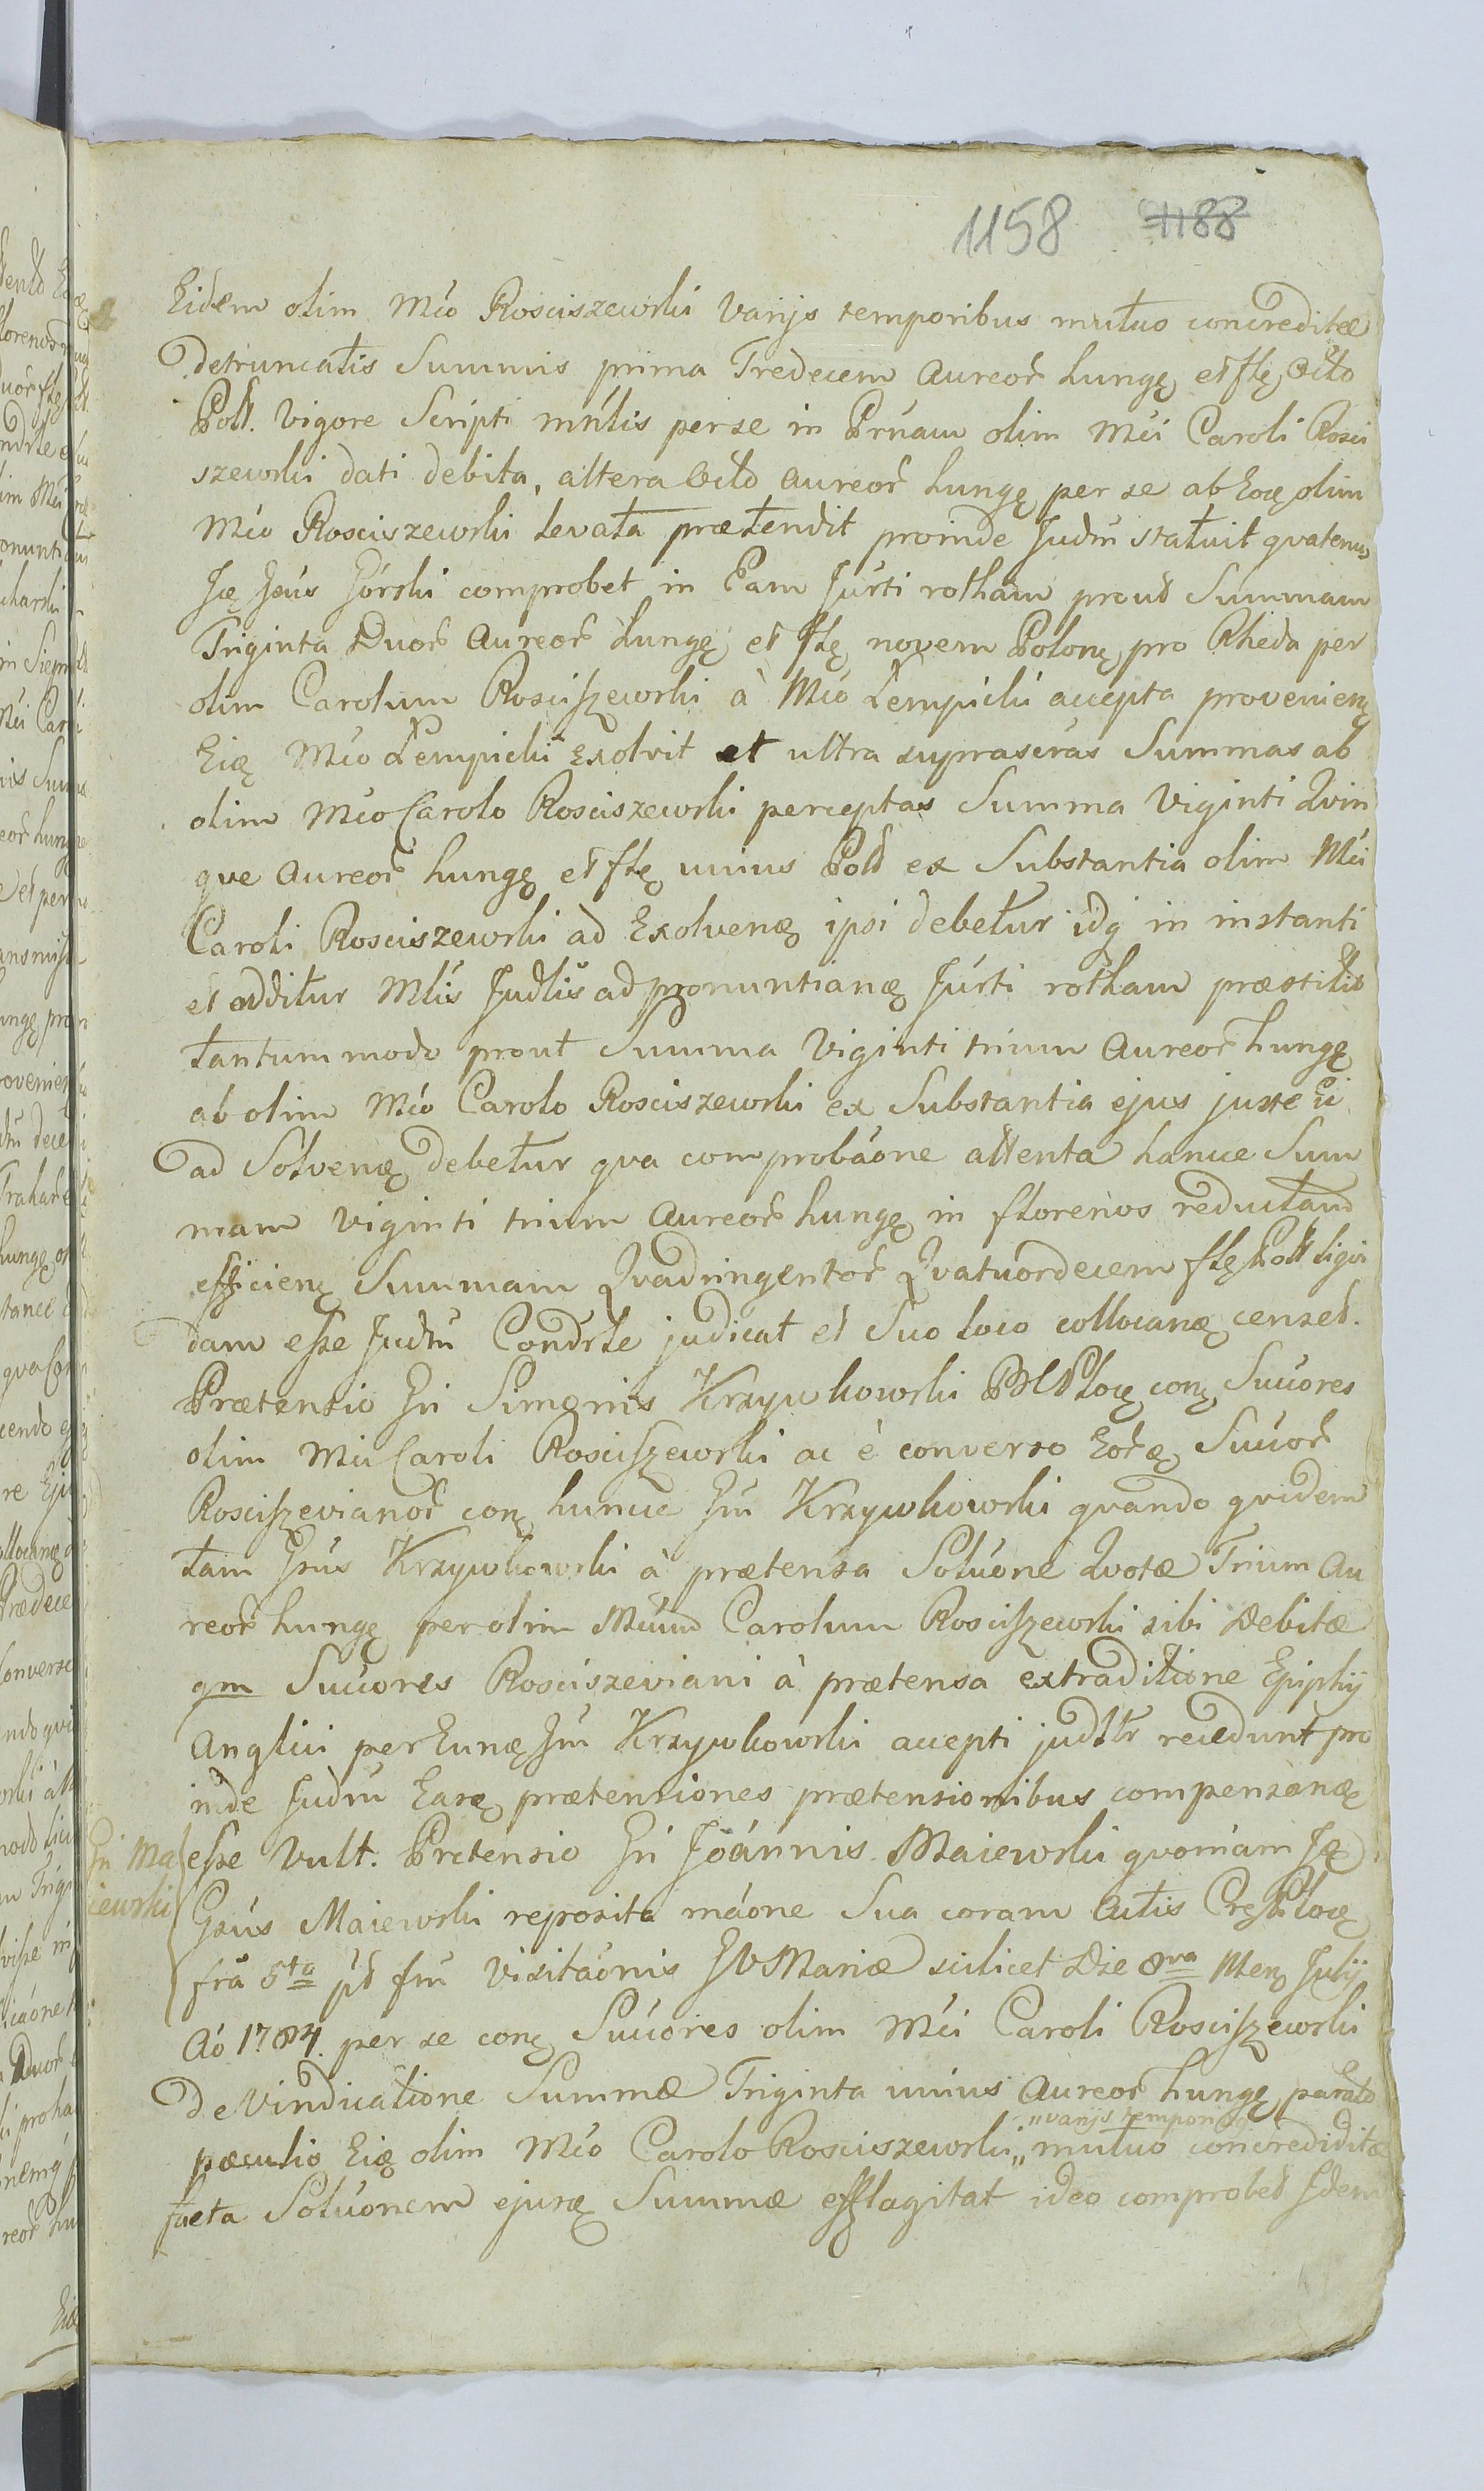 1158 1188
Eidem olim Mío Rosciszewski varijs temporibus mutuo concreditæ
detruncatis Summis prima Tredecem Aureor̃ hungę et flę Octo
Poll. vigore Scripti mńlis per se in Prńam olim Múi Caroli Rosci
szewski dati debita, altera Octo Aureor̃ hungę per se ab Eoę olim
Mío Rosciszewski levata prætendit proinde Judm̃ statuit qvatenus
Ję Gsús Górski comprobet in Eam Júrti rotham prout Summam
Triginta Duor̃ Aureor̃ hungę et flę novem Polonę pro Rheda per
olim Carolum Rosciszewski à Mío Lempicki accepta provenienę
Eię Mío Lempicki exolvit et ultra suprascras Summas ab
olim Mío Carolo Rosciszewski perceptas Summa Viginti Qvin
qve Aureor̃ hungę et flę unius Poll ex Substantia olim Múi
Caroli Rosciszewski ad Exolvenę ipsi debetur idq in instanti
et additur Mlis Judlis ad pronuntianę Júrti rotham præstitit
tantummodo prout Summa Viginti trium Aureor̃ hungę
ab olim Mío Carolo Rosciszewski ex Substantia ejus juste Ei
ad Solvenę debetur qva comprobáone attenta hancce Sum
mam viginti trium Aureor̃ hungę in florenos reductam
efficienę Summam Qvadringentor̃ Qvatuordecem flę Poll liqvi
dam esse Judm̃ Condrle judicat et Suo loco collocanę censet.
Prætensio Gń Simonis Krzywkowski BCPlocę conę Succores
olim Múi Caroli Rosciszewski ac è converso Eor̃ę Succor̃
Rosciszevianor̃ conę huncce Gm̃ Krzywkowski qvando qvidem
tam Gsús Krzywkowski à prætensa Solúone Qvotæ Trium Au
reor̃ hungę per olim Múum Carolum Rosciszewski sibi Debitæ
qm Succores Rosciszeviani à prætensa extraditione Epiphij
Anglici per Eunę Gm̃ Krzywkowski accepti judltr recedunt pro
inde Judm̃ Easę prætensiones prætensionibus compensanę
Gń Ma esse vult. Pretensio Gń Joánnis Maiewski qvoniam Ję
iewski Gsús Maiewski reposita máone Sua coram Actis CresPlocę
frã 5ta pt fm̃ Visitáonis BVMariæ scilicet Die 8va Menę Julij
Aó 1784. per se conę Succores olim Múi Caroli Rosciszewski
de Vindicatione Summæ Triginta unius Aureor̃ hungę parato
„varijs temporibq
pæculio Eię olim Mío Carolo Rosciszewski „ mutuo concreditæ
facta Solúonem ejusę Summæ efflagitat ideo comprobet Idem